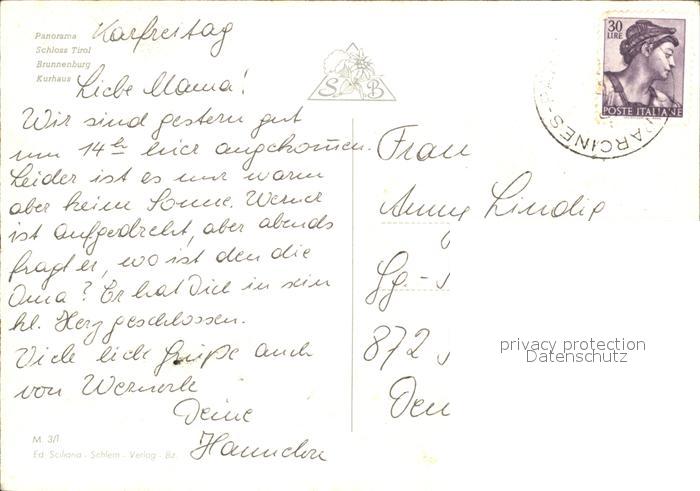 Panorama
Schloss Tirol
Brunnenburg
Kurhaus
Karfreitag
Liebe Mama!
Wir sind gestern gut
um 14 h hier angekommen.
Leider ist es nur warm
aber keine Sonne. Werner
ist aufgedreht, aber abends
fragt er, wo ist den die
Oma? Er hat Dich in sein
kl. Herz geschlossen.
Viele liebe Grüße auch
von Wernerle
Deine
Hannelore
M. 3/1
Ed. Sciliana - Schlern - Verlag - Bz.
S B
30
LIRE
POSTE ITALIANE
PARCINES
Frau
Anny
872
privacy protection
Datenschutz